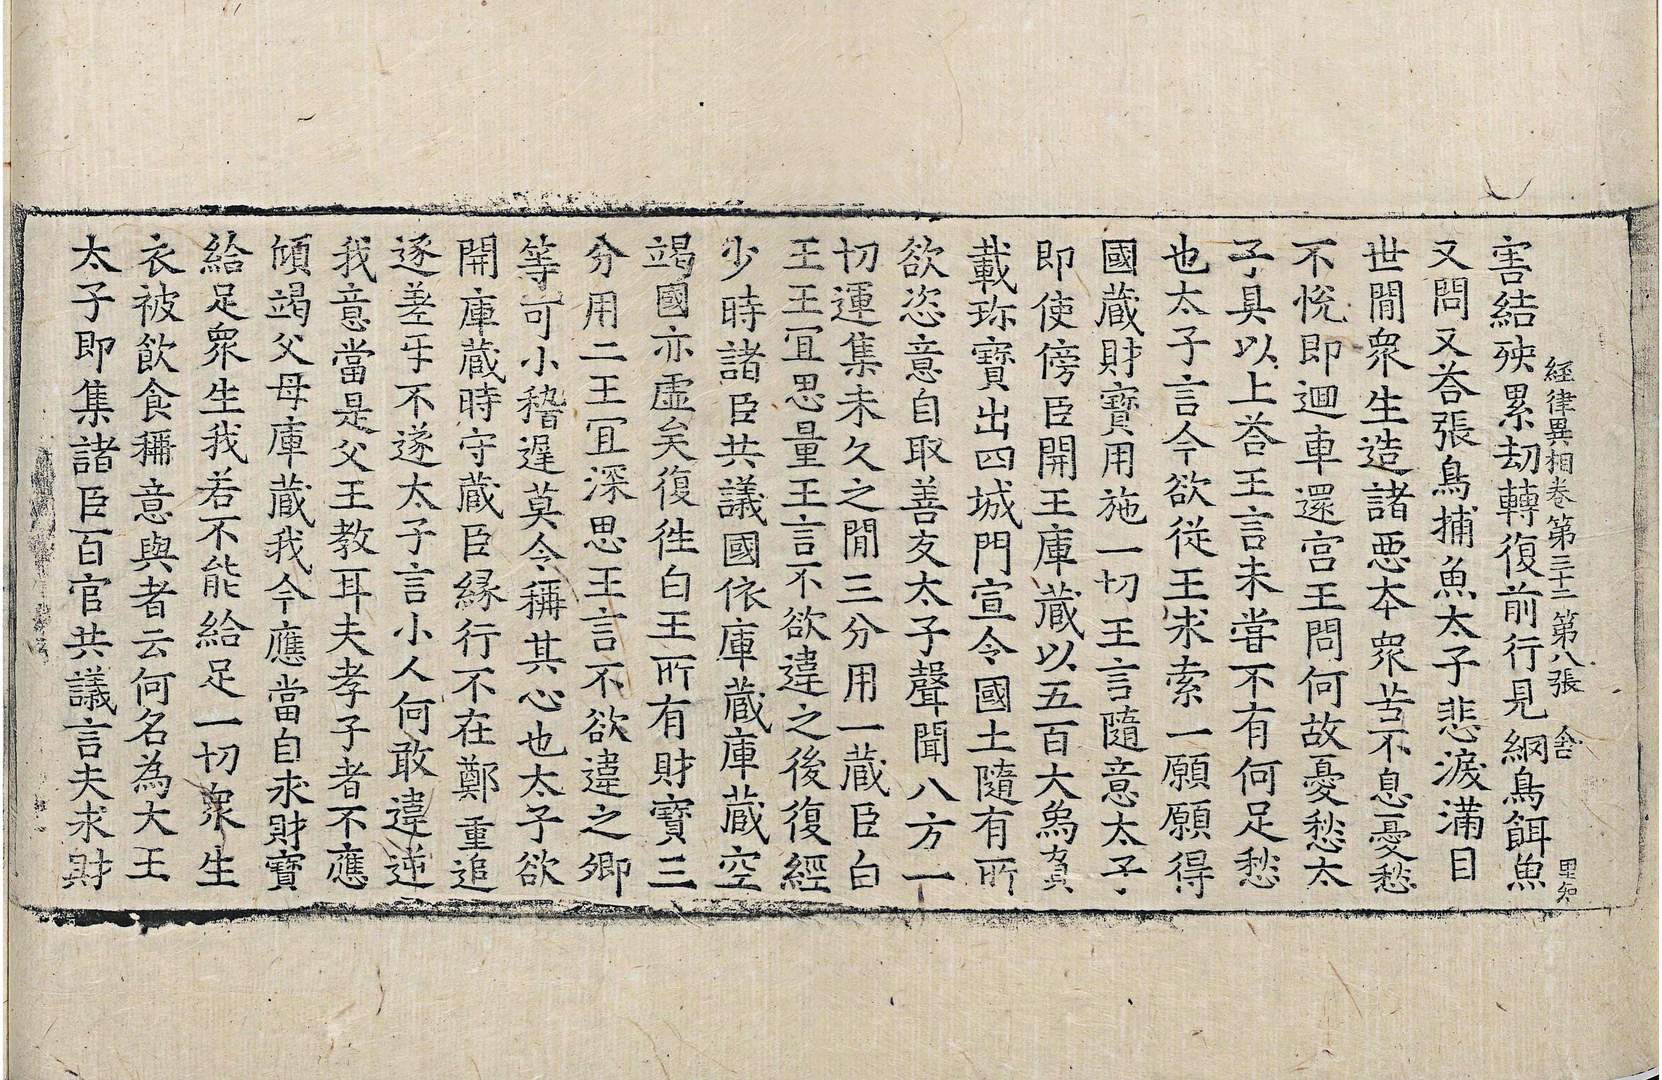 經律異相卷第三十二 第八張 舍
害結殃累劫轉復前行見網鳥餌魚
又問又荅張鳥捕魚太子悲淚滿目
世閒衆生造諸惡夲衆苦不息憂愁
不悅即迴車還宮王問何故憂愁太
子具以上荅王言未甞不有何足愁
也太子言今欲從王求索一願願得
國藏財寶用施一切王言隨意太子
即使傍臣開王庫藏以五百大象負
載珎寶出四城門宣令國土隨有所
欲恣意自取善友太子聲聞八方一
切運集未久之閒三分用一藏臣白
王王冝思量王言不欲違之後復經
少時諸臣共議國依庫藏庫藏空
竭國亦虛矣復徃白王所有財寶三
分用二王冝深思王言不欲違之卿
等可小稽遲莫令稱其心也太子欲
開庫藏時守藏臣緣行不在鄭重追
逐差互不遂太子言小人何敢違逆
我意當是父王教耳夫孝子者不應
傾竭父母庫藏我今應當自求財寶
給足衆生我若不能給足一切衆生
衣被飲食稱意與者云何名為大王
太子即集諸臣百官共議言夫求財